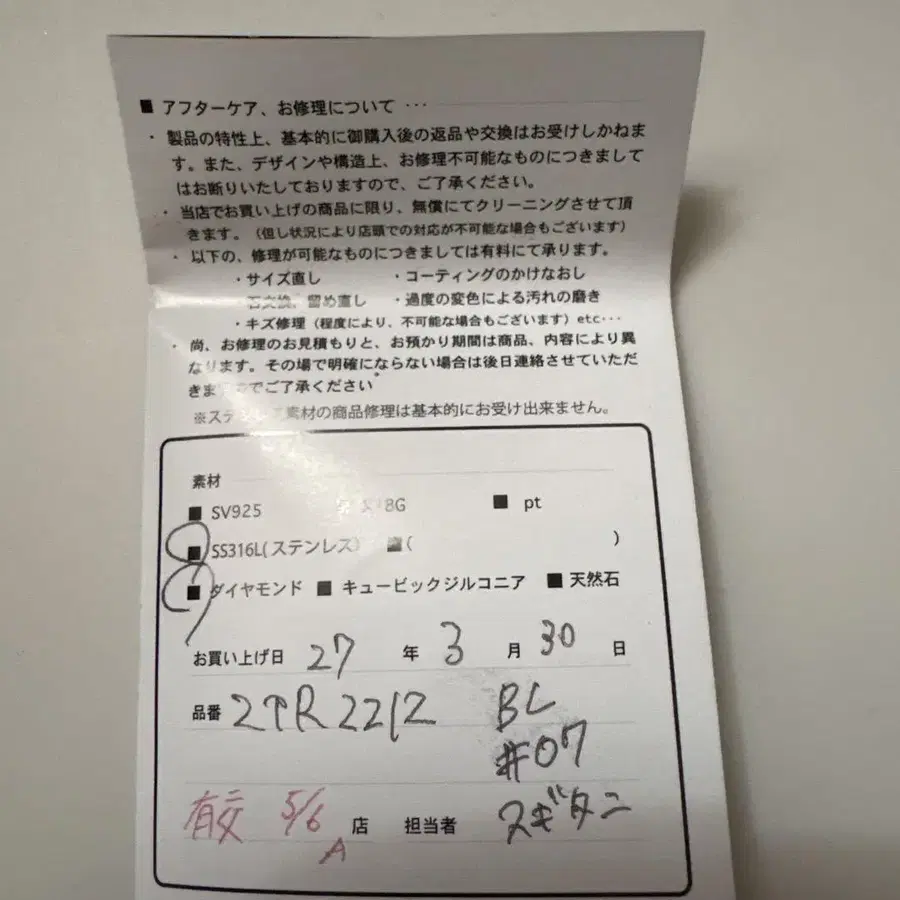 ■ アフターケア、お修理について ・・・
・ 製品の特性上、基本的に御購入後の返品や交換はお受けしかねま
す。また、デザインや構造上、お修理不可能なものにつきまして
はお断りいたしておりますので、ご了承ください。
・ 当店でお買い上げの商品に限り、無償にてクリーニングさせて頂
きます。（但し状況により店頭での対応が不可能な場合もございます）
・ 以下の、修理が可能なものにつきましては有料にて承ります。
・サイズ直し ・コーティングのかけなおし
石交換、留め直し ・過度の変色による汚れの磨き
・キズ修理（程度により、不可能な場合もございます）etc・・・
・ 尚、お修理のお見積もりと、お預かり期間は商品、内容により異
なります。その場で明確にならない場合は後日連絡させていただ
きま でご了承ください
※ステンレス素材の商品修理は基本的にお受け出来ません。
素材
■ SV925 18G ■ pt
■ SS316L(ステンレス) ■( )
■ ダイヤモンド ■ キュービックジルコニア ■ 天然石
お買い上げ日 27 年 3 月 30 日
品番 2212 BL
#07
5/6 店 担当者 スギタニ
A